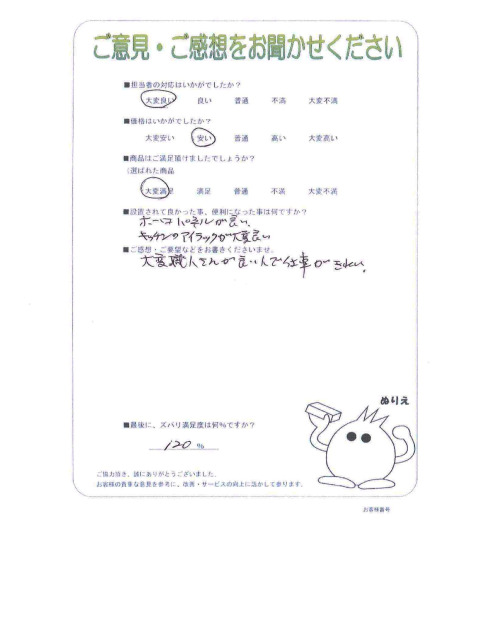 ご意見・ご感想をお聞かせください
■担当者の対応はいかがでしたか？
大変良い 良い 普通 不満 大変不満
■価格はいかがでしたか？
大変安い 安い 普通 高い 大変高い
■商品はご満足頂けましたでしょうか？
(選ばれた商品
大変満足 満足 普通 不満 大変不満
■設置されて良かった事、便利になった事は何ですか？
ホーローパネルが良い
キッチンのアイラックが大変良い
■ご感想・ご要望などをお書きくださいませ。
大変職人さんが良い人で仕事がきれい。
ぬりえ
■最後に、ズバリ満足度は何％ですか？
120 %
ご協力頂き、誠にありがとうございました。
お客様の貴重な意見を参考に、改善・サービスの向上に活かして参ります。
お客様番号